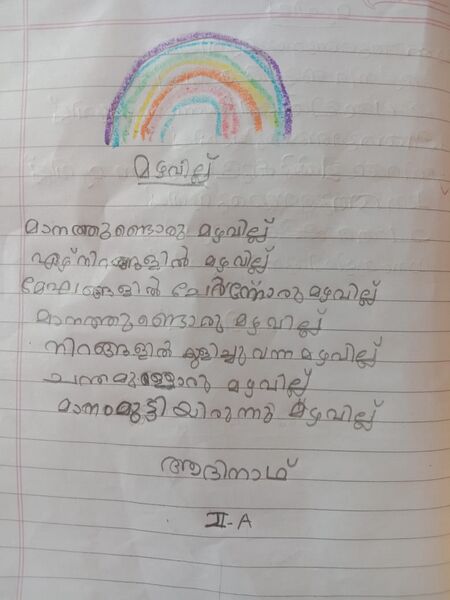 മഴവില്ല്
മാനത്തുണ്ടൊരു മഴവില്ല്
ഏഴ് നിറങ്ങളിൽ മഴവില്ല്
മേഘങ്ങളിൽ ചേർന്നോരു മഴവില്ല്
മാനത്തുണ്ടൊരു മഴവില്ല്
നിറങ്ങളിൽ കുളിച്ചു വന്ന മഴവില്ല്
ചന്തമുള്ളോറു മഴവില്ല്
മാനംമുട്ടിയിരുന്നു മഴവില്ല്
ആദിനാഥ്
II-A